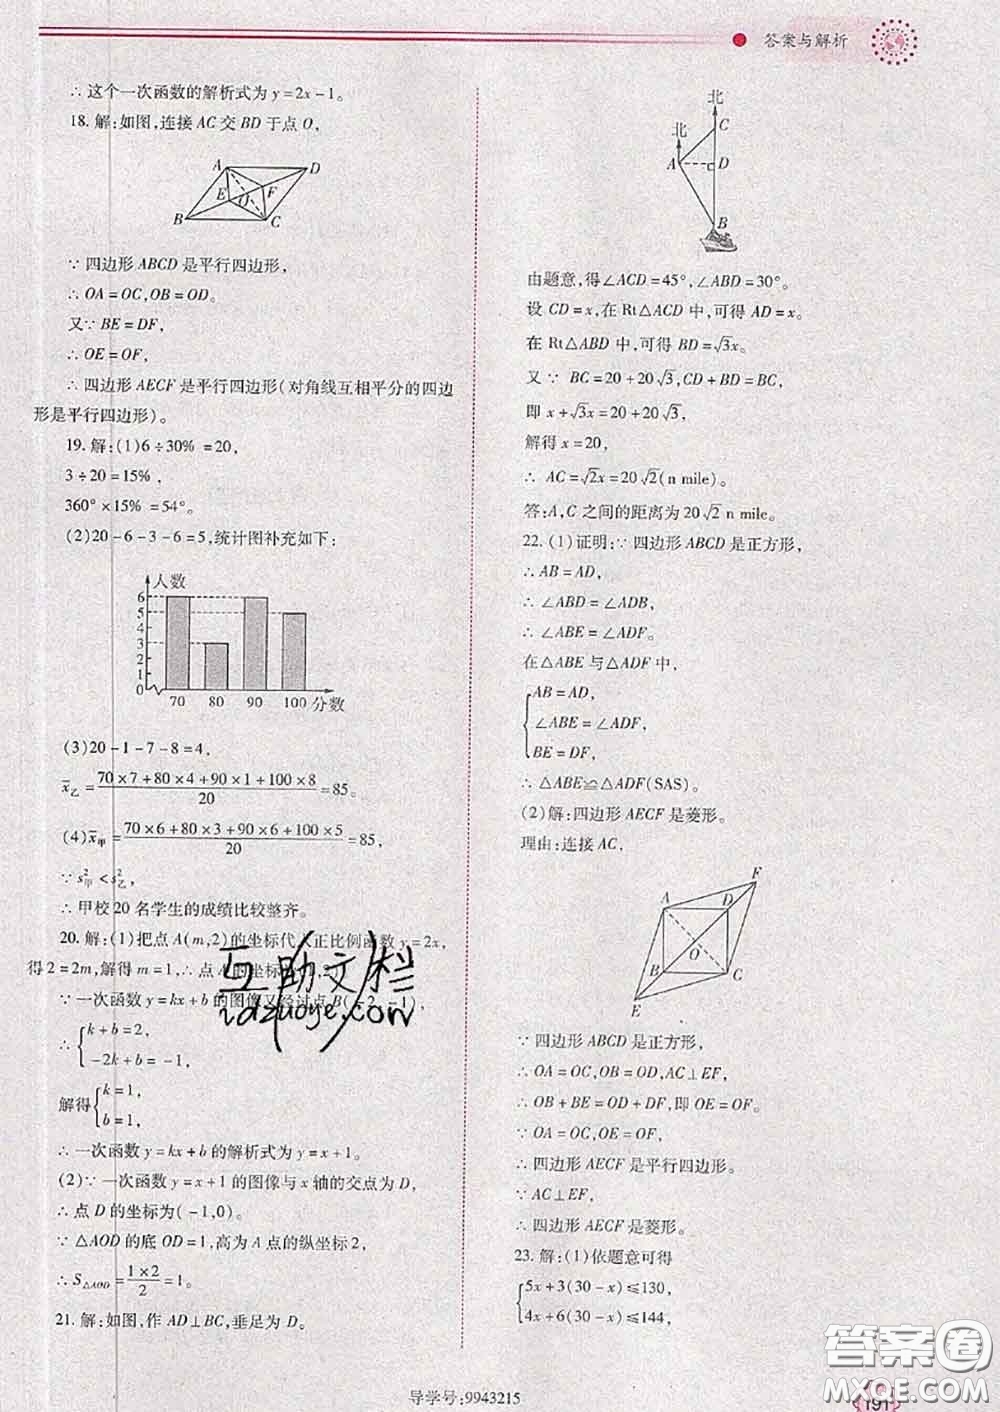 答案与解析
∴这个一次函数的解析式为 y=2x-1。
18.解:如图,连接 AC 交 BD 于点 O,
A D
E F
O
B C
∵四边形 ABCD 是平行四边形,
∴OA=OC,OB=OD。
又∵BE=DF,
∴OE=OF,
∴四边形 AECF 是平行四边形(对角线互相平分的四边
形是平行四边形)。
19.解:(1)6÷30%=20,
3÷20=15%,
360°×15%=54°。
(2)20-6-3-6=5,统计图补充如下:
人数
6
5
4
3
2
1
0
70 80 90 100 分数
(3)20-1-7-8=4,
x̄乙=(70×7+80×4+90×1+100×8)/20=85。
(4)x̄甲=(70×6+80×3+90×6+100×5)/20=85,
∵s²甲<s²乙,
∴甲校20名学生的成绩比较整齐。
20.解:(1)把点 A(m,2)的坐标代入正比例函数 y=2x,
得2=2m,解得 m=1,∴点 A 的坐标为(1,2)。
∵一次函数 y=kx+b 的图像又经过点 B(-2,-1),
∴{k+b=2,
-2k+b=-1,
解得{k=1,
b=1,
∴一次函数 y=kx+b 的解析式为 y=x+1。
(2)∵一次函数 y=x+1 的图像与 x 轴的交点为 D,
∴点 D 的坐标为(-1,0)。
∵△AOD 的底 OD=1,高为 A 点的纵坐标2,
∴S△AOD=(1×2)/2=1。
21.解:如图,作 AD⊥BC,垂足为 D。
北
北 C
A D
B
由题意,得∠ACD=45°,∠ABD=30°。
设 CD=x,在 Rt△ACD 中,可得 AD=x。
在 Rt△ABD 中,可得 BD=√3x。
又∵BC=20+20√3,CD+BD=BC,
即 x+√3x=20+20√3,
解得 x=20,
∴AC=√2x=20√2(n mile)。
答:A,C 之间的距离为 20√2 n mile。
22.(1)证明:∵四边形 ABCD 是正方形,
∴AB=AD,
∴∠ABD=∠ADB,
∴∠ABE=∠ADF。
在△ABE 与△ADF 中,
{AB=AD,
∠ABE=∠ADF,
BE=DF,
∴△ABE≌△ADF(SAS)。
(2)解:四边形 AECF 是菱形。
理由:连接 AC,
F
A D
O
B C
E
∵四边形 ABCD 是正方形,
∴OA=OC,OB=OD,AC⊥EF,
∴OB+BE=OD+DF,即 OE=OF。
∵OA=OC,OE=OF,
∴四边形 AECF 是平行四边形。
∵AC⊥EF,
∴四边形 AECF 是菱形。
23.解:(1)依题意可得
{5x+3(30-x)≤130,
4x+6(30-x)≤144,
互助文档
idzuoye.com
导学号:9943215
191
答案圈
MXQE.COM